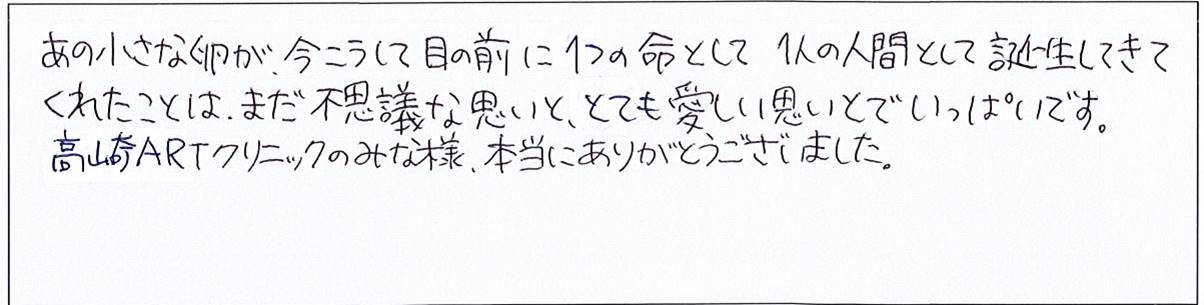 あの小さな卵が、今こうして目の前に1つの命として 1人の人間として誕生してきて
くれたことは、まだ不思議な思いと、とても愛しい思いとでいっぱいです。
高崎ARTクリニックのみな様、本当にありがとうございました。